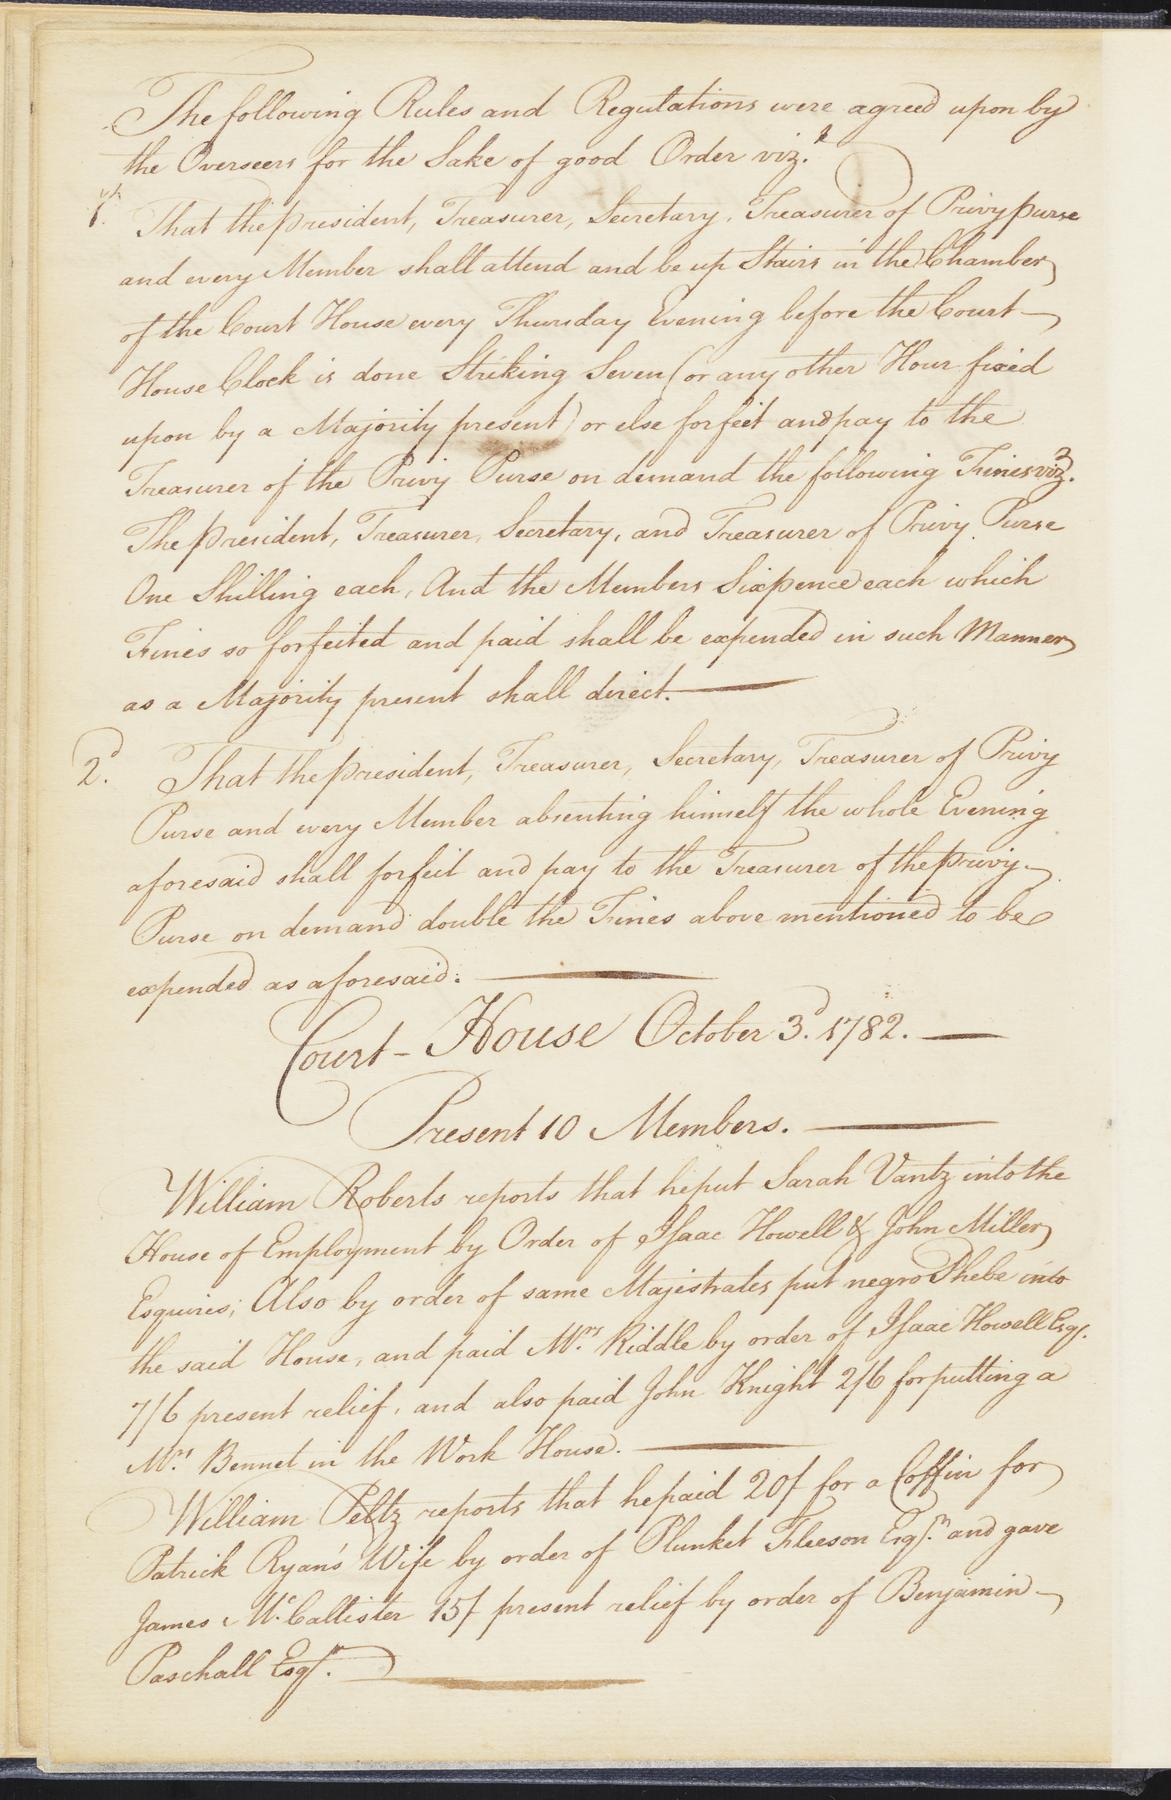 The following Rules and Regulations were agreed upon by
the Overseers for the Sake of good Order viz.t
1st. That the president, Treasurer, Secretary, Treasurer of Privy purse
and every Member shall attend and be up Stairs in the Chamber
of the Court House every Thursday Evening before the Court-
House Clock is done Striking Seven (or any other Hour fixed
upon by a Majority present) or else forfeit and pay to the
Treasurer of the Privy Purse on demand the following Fines viz.
The president, Treasurer, Secretary, and Treasurer of Privy Purse
One Shilling each, And the Members Sixpence each which
Fines so forfeited and paid shall be expended in such Manner
as a Majority present shall direct.
2d. That the president, Treasurer, Secretary, Treasurer of Privy
Purse and every Member absenting himself the whole Evening
aforesaid shall forfeit and pay to the Treasurer of the privy
Purse on demand double the Fines above mentioned to be
expended as aforesaid.
Court-House October 3d. 1782.
Present 10 Members.
William Roberts reports that he put Sarah Vantz into the
House of Employment by Order of Isaac Howell & John Miller
Esquires; Also by order of same Majestrates put negro Phebe into
the said House, and paid Mrs. Riddle by order of Isaac Howell Esqr.
7/6 present relief, and also paid John Knight 2/6 for putting a
Mrs. Bennet in the Work House.
William Peltz reports that he paid 20/ for a Coffin for
Patrick Ryan's Wife by order of Plunket Fleeson Esqr. and gave
James McCallister 15/ present relief by order of Benjamin
Paschall Esqr.